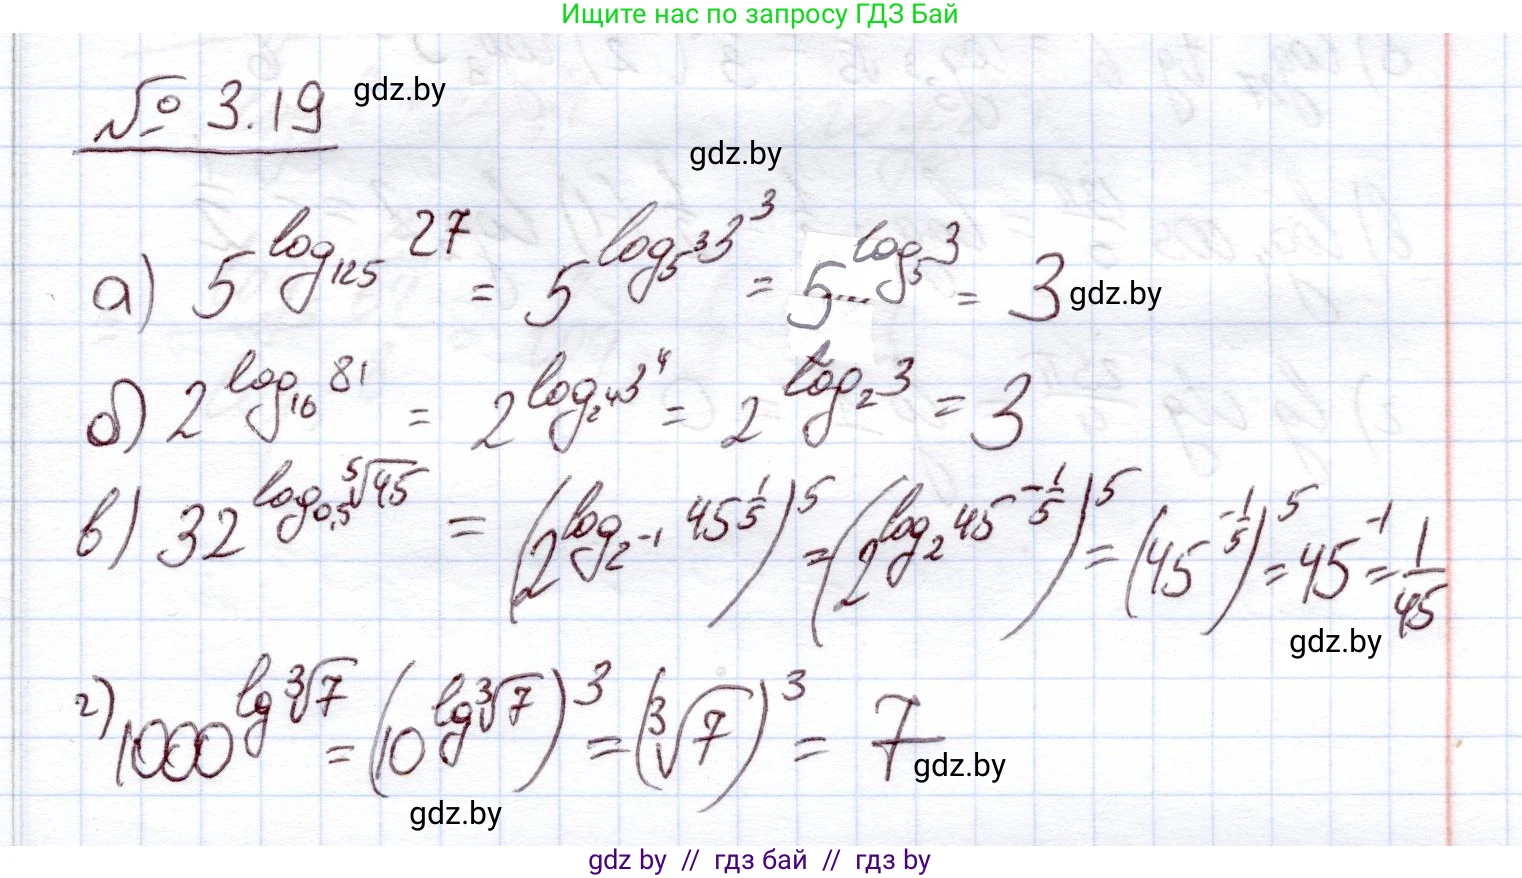 Ищите нас по запросу ГДЗ Бай
№ 3.19 gdz.by
gdz.by
а) 5^{log_{125} 27} = 5^{log_{5^3} 3^3} = 5^{log_5 3} = 3 gdz.by
б) 2^{log_{16} 81} = 2^{log_{2^4} 3^4} = 2^{log_2 3} = 3
в) 32^{log_{0,5} \sqrt[5]{45}} = (2^{log_{2^{-1}} 45^{1/5}})^5 = (2^{log_2 45^{-1/5}})^5 = (45^{-1/5})^5 = 45^{-1} = 1/45
gdz.by
г) 1000^{lg \sqrt[3]{7}} = (10^{lg \sqrt[3]{7}})^3 = (\sqrt[3]{7})^3 = 7
gdz.by
gdz.by
gdz by // гдз бай // гдз by